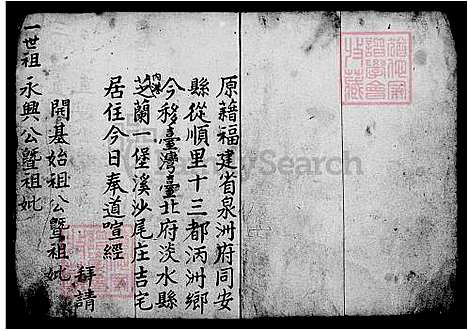 原籍福建省泉洲府同安
縣從順里十三都洒洲鄉
今移臺灣臺北府淡水縣
芝蘭一堡溪沙尾庄吉宅
內港
居住今日奉道喧經
拜請
開基始祖公暨祖妣
一世祖永興公暨祖妣
Search